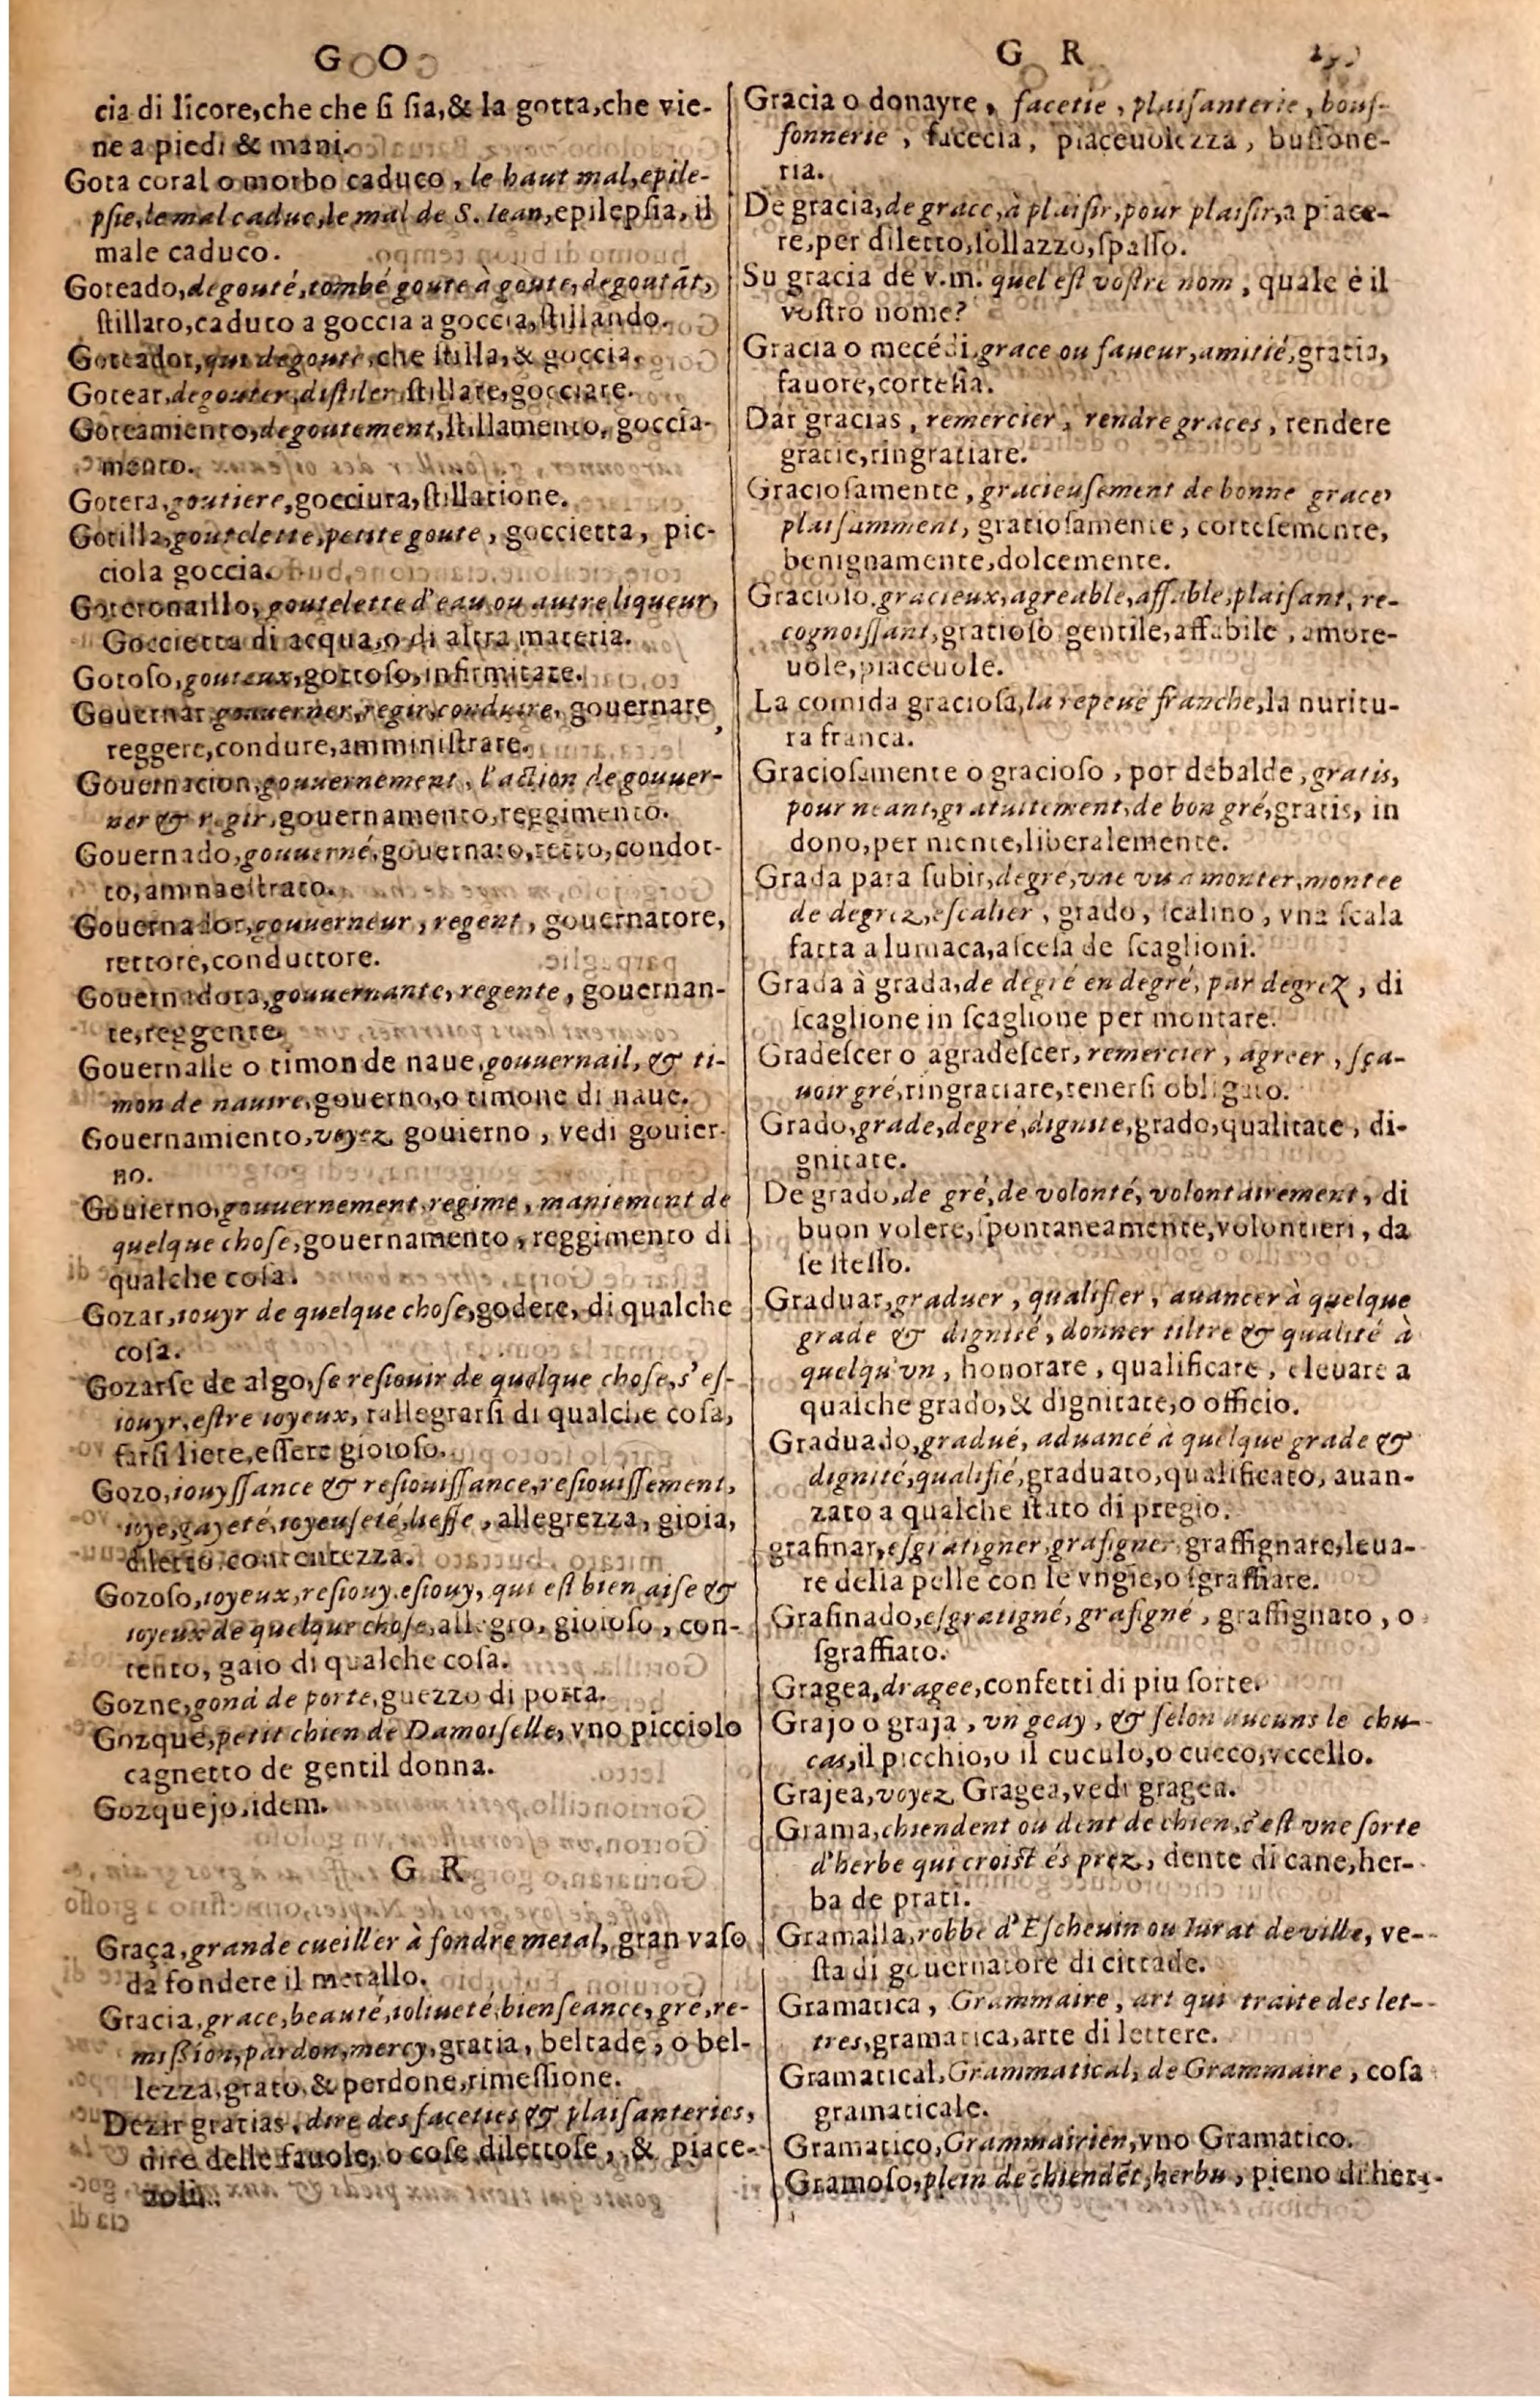 G O
cia di licore, che che ſi ſia, & la gotta, che vie-
ne a piedi & mani.
Gota coral o morbo caduco, le haut mal, epile-
pſie, le mal caduc, le mal de S. Iean, epilepſia, il
male caduco.
Goteado, degouté, tombé goute à goute, degoutãt,
ſtillato, caduto a goccia a goccia, ſtillando.
Goteador, qui degoute, che ſtilla, & goccia.
Gotear, degouter, diſtiler, ſtillare, gocciare.
Goteamiento, degoutement, ſtillamento, goccia-
mento.
Gotera, goutiere, gocciura, ſtillatione.
Gotilla, goutelette, petite goute, goccietta, pic-
ciola goccia.
Goteronaillo, goutelette d'eau ou autre liqueur,
Goccietta di acqua, o di altra materia.
Gotoſo, gouteux, gottoſo, infirmitate.
Gouernar, gouuerner, regir, conduire, gouernare,
reggere, condure, amminiſtrare.
Gouernacion, gouuernement, l'action de gouuer-
ner & regir, gouernamento, reggimento.
Gouernado, gouuerné, gouernato, retto, condot-
to, ammaeſtrato.
Gouernador, gouuerneur, regent, gouernatore,
rettore, conduttore.
Gouernadora, gouuernante, regente, gouernan-
te, reggente.
Gouernalle o timon de naue, gouuernail, & ti-
mon de nauire, gouerno, o timone di naue.
Gouernamiento, voyez gouierno, vedi gouier-
no.
Gouierno, gouuernement, regime, maniement de
quelque choſe, gouernamento, reggimento di
qualche coſa.
Gozar, iouyr de quelque choſe, godere, di qualche
coſa.
Gozarſe de algo, ſe reſiouir de quelque choſe, s'eſ-
iouyr, eſtre ioyeux, rallegrarſi di qualche coſa,
farſi liete, eſſere gioioſo.
Gozo, iouyſſance & reſiouiſſance, reſiouiſſement,
ioye, gayeté, ioyeuſeté, lieſſe, allegrezza, gioia,
diletto, contentezza.
Gozoſo, ioyeux, reſiouy, eſiouy, qui eſt bien aiſe &
ioyeux de quelque choſe, allegro, gioioſo, con-
tento, gaio di qualche coſa.
Gozne, gond de porte, guezzo di porta.
Gozque, petit chien de Damoiſelle, vno picciolo
cagnetto de gentil donna.
Gozquejo, idem.
G R
Graça, grande cueiller à fondre metal, gran vaſo
da fondere il metallo.
Gracia, grace, beauté, ioliueté, bienſeance, gré, re-
miſſion, pardon, mercy, gratia, beltade, o bel-
lezza, grato, & perdone, rimeſſione.
Dezir gratias, dire des faceties & plaiſanteries,
dire delle fauole, o coſe dilettoſe, & piace-
uoli.
cia di
G R
Gracia o donayre, facetie, plaiſanterie, bouf-
fonnerie, facecia, piaceuolezza, buffone-
ria.
De gracia, de grace, à plaiſir, pour plaiſir, a piace-
re, per diletto, ſollazzo, ſpaſſo.
Su gracia de v.m. quel eſt voſtre nom, quale è il
voſtro nome?
Gracia o mecédi, grace ou faueur, amitié, gratia,
fauore, corteſia.
Dar gracias, remercier, rendre graces, rendere
gratie, ringratiare.
Gracioſamente, gracieuſement de bonne grace,
plaiſamment, gratioſamente, corteſemente,
benignamente, dolcemente.
Gracioſo, gracieux, agreable, affable, plaiſant, re-
cognoiſſant, gratioſo gentile, affabile, amore-
uole, piaceuole.
La comida gracioſa, la repeuë franche, la nuritu-
ra franca.
Gracioſamente o gracioſo, por debalde, gratis,
pour neant, gratuitement, de bon gré, gratis, in
dono, per niente, liberalemente.
Grada para ſubir, degré, vne vis a monter, montee
de degrez, eſcalier, grado, ſcalino, vna ſcala
fatta a lumaca, aſceſa de ſcaglioni.
Grada à grada, de degré en degré, par degrez, di
ſcaglione in ſcaglione per montare.
Gradeſcer o agradeſcer, remercier, agreer, ſça-
uoir gré, ringratiare, tenerſi obligato.
Grado, grade, degré, dignité, grado, qualitate, di-
gnitate.
De grado, de gré, de volonté, volontairement, di
buon volere, ſpontaneamente, volontieri, da
ſe ſteſſo.
Graduar, graduer, qualifier, auancer à quelque
grade & dignité, donner tiltre & qualité à
quelqu'vn, honorare, qualificare, eleuare a
qualche grado, & dignitate, o officio.
Graduado, gradué, aduancé à quelque grade &
dignité, qualifié, graduato, qualificato, auan-
zato a qualche ſtato di pregio.
grafinar, eſgratigner, grafigner, graffignare, leua-
re della pelle con le vngie, o ſgraffiare.
Grafinado, eſgratigné, grafigné, graffignato, o
ſgraffiato.
Gragea, dragee, confetti di piu ſorte.
Grajo o graja, vn geay, & ſelon aucuns le chu-
cas, il picchio, o il cuculo, o cucco, vccello.
Grajea, voyez Gragea, vedi gragea.
Grama, chiendent ou dent de chien, c'eſt vne ſorte
d'herbe qui croiſt és prez, dente di cane, her-
ba de prati.
Gramalla, robbe d'Eſcheuin ou Iurat de ville, ve-
ſta di gouernatore di cittade.
Gramatica, Grammaire, art qui traite des let-
tres, gramatica, arte di lettere.
Gramatical, Grammatical, de Grammaire, coſa
gramaticale.
Gramatico, Grammairien, vno Gramatico.
Gramoſo, plein de chiendẽt, herbu, pieno di her-